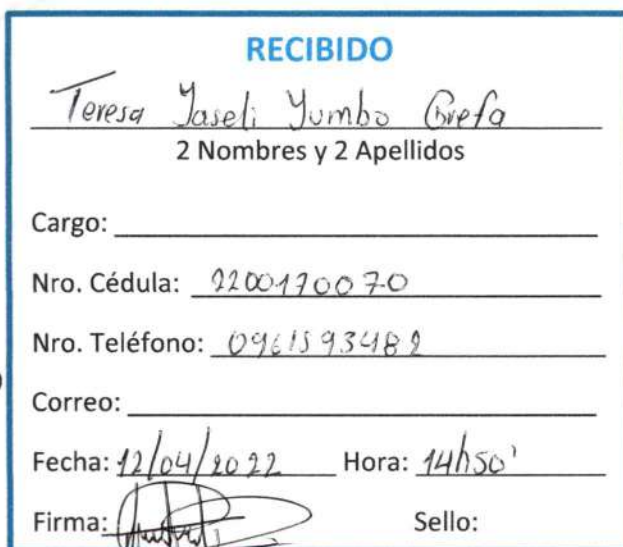 RECIBIDO
Teresa Yaseli Yumbo Grefa
2 Nombres y 2 Apellidos
Cargo:
Nro. Cédula: 2200170070
Nro. Teléfono: 0961593482
Correo:
Fecha: 12/04/2022 Hora: 14h50'
Firma: Sello: